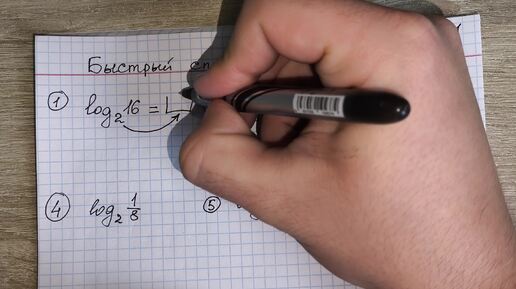 Быстрый сп
① log₂16 =
④ log₂ 1/8
⑤